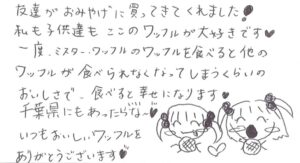 友達がおみやげに買ってきてくれました!
私も子供達も ここのワッフルが大好きです♥
一度、ミスター・ワッフルのワッフルを食べると他の
ワッフルが食べられなくなってしまうくらいの
おいしさで、食べると幸せになります♥
千葉県にもあったらな〜♥
いつもおいしいワッフルを
ありがとうございます♥